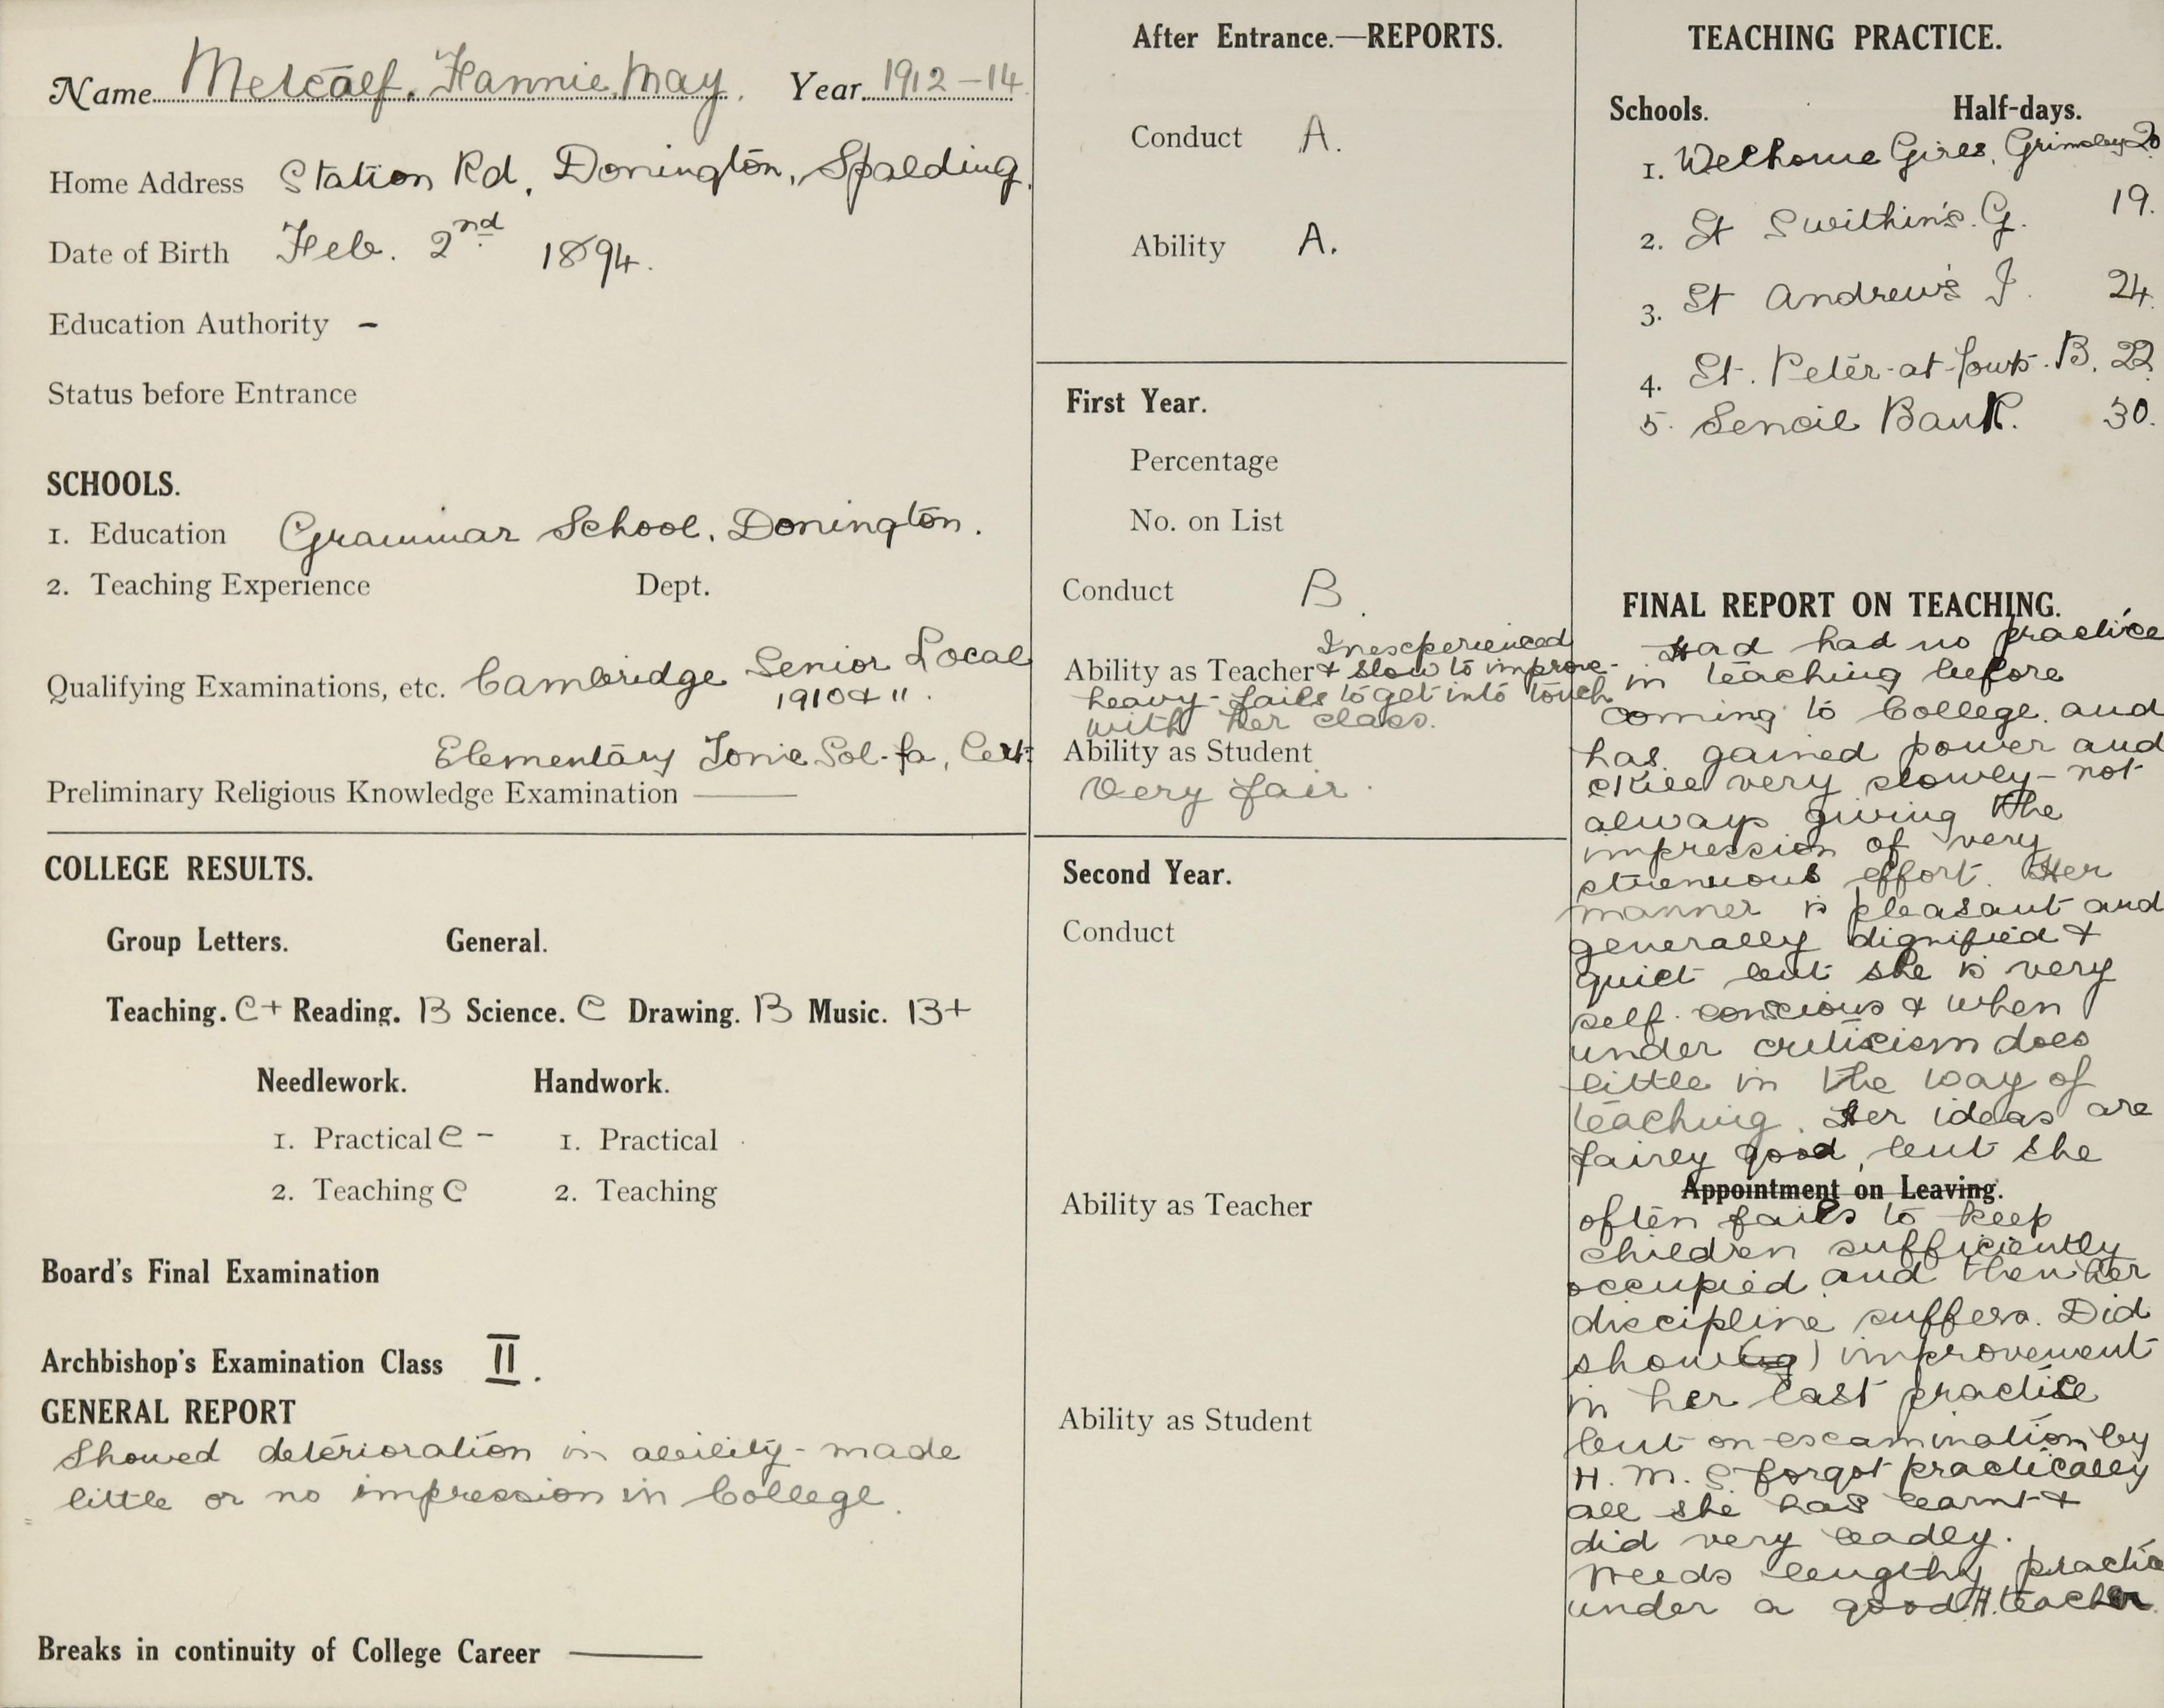 Name Metcalf. Fannie May. Year 1912-14
Home Address Station Rd, Donington, Spalding.
Date of Birth Feb. 2nd 1894.
Education Authority -
Status before Entrance
SCHOOLS.
1. Education Grammar School, Donington.
2. Teaching Experience Dept.
Qualifying Examinations, etc. Cambridge Senior Local
1910 & 11.
Elementary Tonic Sol-fa, Cert
Preliminary Religious Knowledge Examination —
COLLEGE RESULTS.
Group Letters. General.
Teaching. C+ Reading. B Science. C Drawing. B Music. B+
Needlework. Handwork.
1. Practical C - 1. Practical
2. Teaching C 2. Teaching
Board's Final Examination
Archbishop's Examination Class II.
GENERAL REPORT
Showed deterioration in ability - made
little or no impression in College.
Breaks in continuity of College Career —
After Entrance.—REPORTS.
Conduct A.
Ability A.
First Year.
Percentage
No. on List
Conduct B.
Inexperienced
Ability as Teacher & slow to improve -
heavy - fails to get into touch
with her class.
Ability as Student
Very fair.
Second Year.
Conduct
Ability as Teacher
Ability as Student
TEACHING PRACTICE.
Schools. Half-days.
1. Welhome Girls, Grimsby 20
2. St Swithin's. G. 19.
3. St Andrew's I. 24.
4. St. Peter-at-Gowts. B. 22.
5. Sencil Bank. 30.
FINAL REPORT ON TEACHING.
Had had no practice
in teaching before
coming to College. and
has gained power and
skill very slowly - not
always giving the
impression of very
strenuous effort. Her
manner is pleasant and
generally dignified &
quiet but she is very
self-conscious & when
under criticism does
little in the way of
teaching. Her ideas are
fairly good, but she
Appointment on Leaving.
often fails to keep
children sufficiently
occupied and then her
discipline suffers. Did
show (ing) improvement
in her last practice
but on examination by
H. M. I. forgot practically
all she has learnt &
did very badly.
Needs lengthy practice
under a good H. teacher.